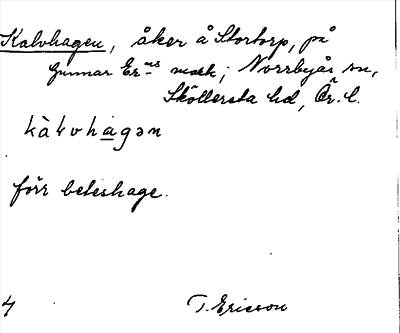 Kalvhagen, åker å Stortorp, på
Gunnar Er:ns mark; Norrbyås sn,
Sköllersta hd, Ör. l.
kàlvhagən
förr beteshage.
4 T. Ericson